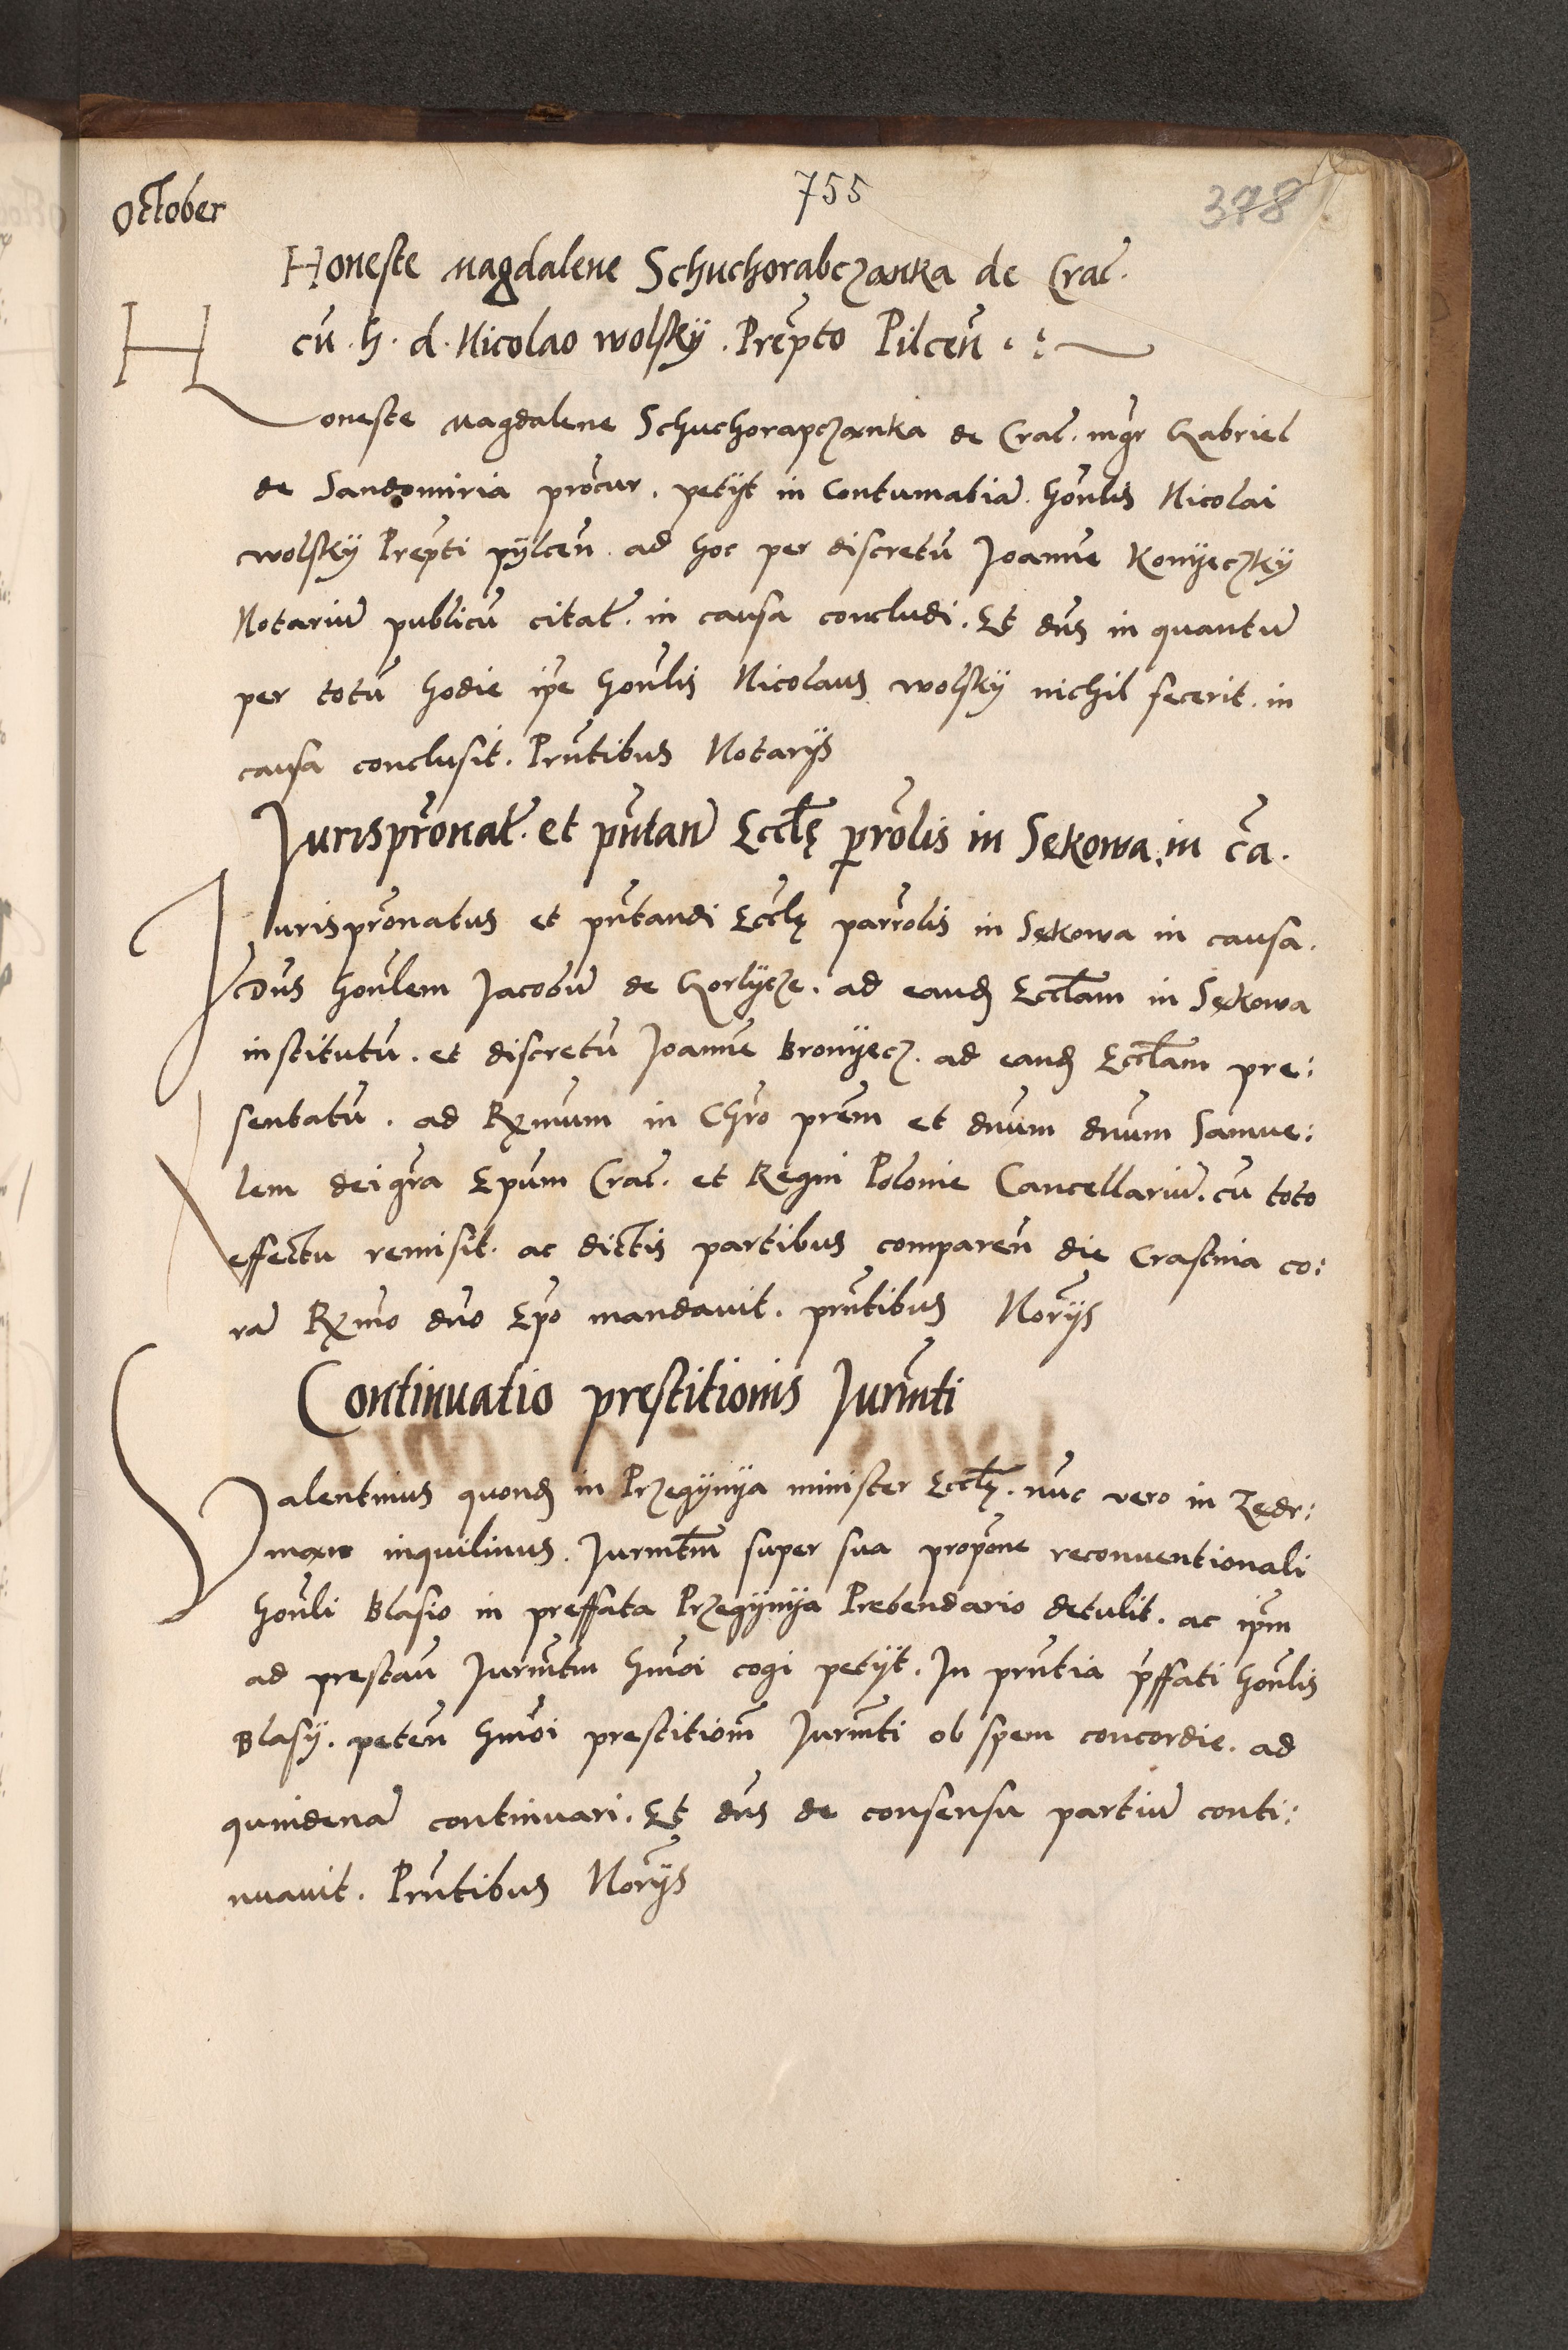 October
755
378
Honeste Magdalene Schuchorabczanka de Crac̃.
cũ . h . d . Nicolao wolskÿ . Prep̃to Pilceñ . :
Honeste Magdalene Schuchorapczanka de Crac̃ . mg̃r Gabriel
de Sandomiria procur̃ . petÿt in Contumatiã . hoñlis Nicolai
wolskÿ Prep̃ti pÿlceñ . ad hoc per discretũ Joannẽ Konÿeczkÿ
Notariũ publicũ citat̃ . in causa concludi . Et dñs in quantũ
per totũ hodie ip̃e hoñlis Nicolaus wolskÿ nichil fecerit . in
causa conclusit . Pñtibus Notarÿs
Jurispr̃onat̃ . et pñtan̄ Eccl̃ę parr̃olis in Sękowa . in cã .
Jurispr̃onatus et pñtandi Eccl̃ę parr̃olis in Sękowa in causa .
Dñs hoñlem Jacobũ de Gorlÿcze . ad eandẽ Eccl̃am in Sękowa
institutũ . et discretũ Joannẽ Bronÿecz . ad eandẽ Eccl̃am pre:
sentatũ . ad Rx̃mum in Chr̃o pr̃em et dñum dñum Samue:
lem dei gr̃a Ep̃um Crac̃ . et Regni Polonie Cancellariũ . cũ toto
effectu remisit . ac dictis partibus compareñ die Crastina co:
rã Rx̃mo dño Ep̃o mandavit . pñtibus Nor̃ÿs
Continuatio prestitionis Jurm̃ti
Valentinus quondã in Przegÿnÿa minister Eccl̃ę . nũc vero in Zedr:
man inquilinus . Jurm̃tm̃ super sua propõne reconventionali
hoñli Blasio in preffata Przegÿnÿa Prebendario detulit . ac ip̃m
ad prestañ Jurm̃tm̃ hm̃oi cogi petÿt . In pñtia p̃ffati hoñlis
Blasÿ . peteñ hm̃oi prestitionẽ Jurm̃ti ob spem concordie . ad
quindenã continuari . Et dñs de consensu partiũ conti:
nuavit . Pñtibus Nor̃ÿs